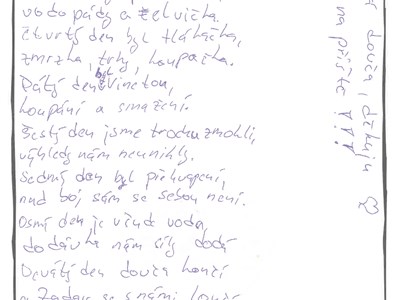 vodopády a želvička.
Čtvrtý den byl tlahačka,
zmrzka, trhy, houpačka.
Pátý den byl Vinetou,
houpání a smažení.
Šestý den jsme trochu zmokli,
výhledy nám neunikly.
Sedmý den byl překvapení,
nad boj sám se sebou není.
Osmý den je všude voda,
dodávka nám síly dodá
Devátý den douča končí
a Zadar se s námi loučí
douča, děkuju ♡
na příště !!!